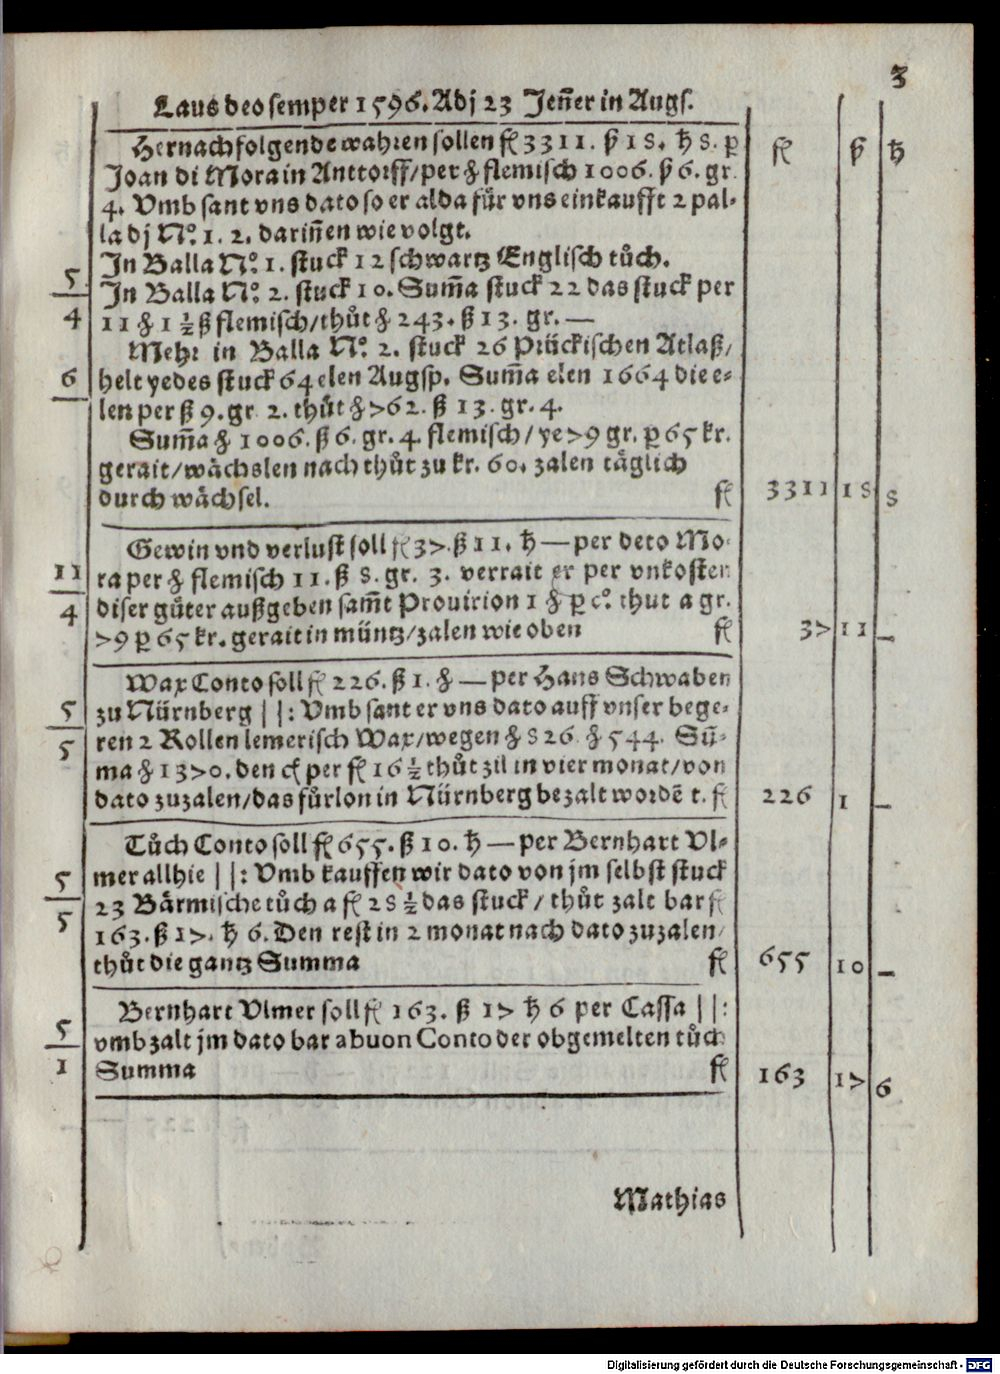 3
Laus deo semper 1596. Adj 23 Jeñer in Augs.
Hernachfolgende wahren sollen fl 3311. ß 18. ₰ 8. p
Joan di Mora in Anttorff/per ₰ flemisch 1006. ß 6. gr.
4. Vmb sant vns dato so er alda fuͤr vns einkaufft 2 pal-
la dj Nº. 1. 2. dariñen wie volgt.
In Balla Nº. 1. stuck 12 schwartz Englisch tuͤch.
5
In Balla Nº. 2. stuck 10. Sum̃a stuck 22 das stuck per
4
11 ₰ 1 ½ ß flemisch/thuͤt ₰ 243. ß 13. gr. —
Mehr in Balla Nº. 2. stuck 26 Pruͤckischen Atlaß/
6
helt yedes stuck 64 elen Augsp. Sum̃a elen 1664 die e-
len per ß 9. gr 2. thuͤt ₰ 762. ß 13. gr. 4.
Sum̃a ₰ 1006. ß 6. gr. 4 flemisch/ye 79 gr. p 65 kr.
gerait/waͤchslen nach thuͤt zu kr. 60. zalen taͤglich
durch waͤchsel. fl 3311 18 8
fl ß ₰
Gewin vnd verlust soll fl 37. ß 11. ₰ — per deto Mo-
11
ra per ₰ flemisch 11. ß 8. gr. 3. verrait er per vnkosten
4
diser guͤter außgeben sam̃t Prouirion 1 ₰ p cº. thut a gr.
79 p 65 kr. gerait in muͤntz/zalen wie oben fl 37 11 —
Wax Conto soll fl 226. ß 1. ₰ — per Hans Schwaben
5
zu Nuͤrnberg ||: Vmb sant er vns dato auff vnser bege-
5
ren 2 Rollen lemerisch Wax/wegen ₰ 826 ₰ 544. Sũ-
ma ₰ 1370. den cſ per fl 16 ½ thuͤt zil in vier monat/von
dato zuzalen/das fuͤrlon in Nuͤrnberg bezalt wordē t. fl 226 1 —
Tuͤch Conto soll fl 655. ß 10. ₰ — per Bernhart Vl-
5
mer allhie ||: Vmb kauffen wir dato von jm selbst stuck
23 Baͤrmische tuͤch a fl 28 ½ das stuck/ thuͤt zalt bar fl
5
163. ß 17. ₰ 6. Den rest in 2 monat nach dato zuzalen/
thuͤt die gantz Summa fl 655 10 —
Bernhart Vlmer soll fl 163. ß 17 ₰ 6 per Cassa ||:
5
vmb zalt jm dato bar a buon Conto der obgemelten tuͤch
1
Summa fl 163 17 6
Mathias
Digitalisierung gefördert durch die Deutsche Forschungsgemeinschaft - DFG